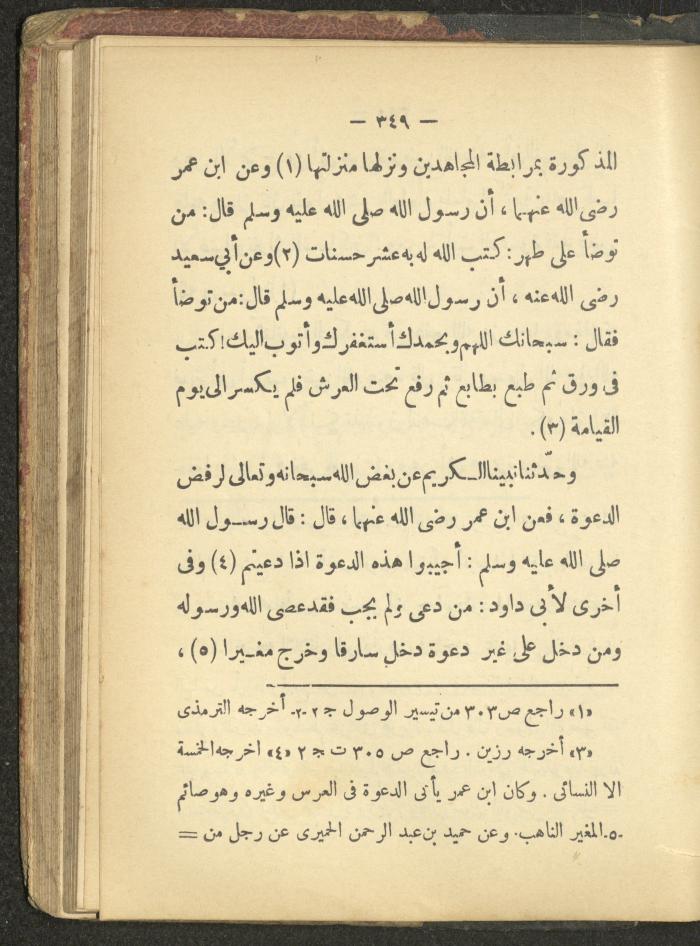 — ٣٤٩ —
المذكورة بمرابطة المجاهدين ونزلها منزلتها (١) وعن ابن عمر
رضى الله عنهما ، أن رسول الله صلى الله عليه وسلم قال: من
توضأ على طهر: كتب الله له به عشر حسنات (٢) وعن أبي سعيد
رضى الله عنه ، أن رسول الله صلى الله عليه وسلم قال: من توضأ
فقال : سبحانك اللهم وبحمدك أستغفرك وأتوب اليك! كتب
فى ورق ثم طبع بطابع ثم رفع تحت العرش فلم يكسر الى يوم
القيامة (٣) .
وحدّثنا نبينا الـكريم عن بغض الله سبحانه وتعالى لرفض
الدعوة ، فعن ابن عمر رضى الله عنهما ، قال : قال رسـول الله
صلى الله عليه وسلم : أجيبوا هذه الدعوة اذا دعيتم (٤) وفى
أخرى لأبى داود : من دعى ولم يجب فقد عصى الله ورسوله
ومن دخل على غير دعوة دخل سارقا وخرج مغـيرا (٥) ،
«١» راجع ص ٣٠٣ من تيسير الوصول ج ٢ -٢- أخرجه الترمذى
«٣» أخرجه رزين . راجع ص ٣٠٥ ت ج ٢ «٤» اخرجه الخمسة
الا النسائى . وكان ابن عمر يأتى الدعوة فى العرس وغيره وهو صائم
-٥- المغير الناهب. وعن حميد بن عبد الرحمن الحميرى عن رجل من =